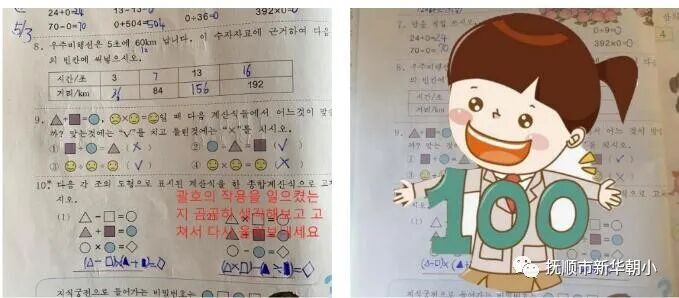 24÷0=24
0÷36=0
392×0=0
5/3
70-0=70
0+504=504
8. 우주비행선은 5초에 60km 납니다. 이 수자자료에 근거하여 다음
의 빈칸에 써넣으시오.
시간/초 3 7 13 16
거리/km 36 84 156 192
9. 일 때 다음 계산식들에서 어느것이 맞습
까? 맞는것에는 "√"를 치고 틀린것에는 "×"를 치시오.
① (×) ② (√)
③ (√) ④ (×)
10. 다음 각 조의 도형으로 표시된 계산식을 한 종합계산식으로 고쳐
시오.
괄호의 작용을 일으켰는
지 곰곰히 생각해보고 고
쳐서 다시 올려보내세요
(1) △-□=○
▲+■=●
○×●=◇
(△-□)×(▲+■)=◇
△×□=○
○-●=◇
지식궁전으로 들어가는 비밀번호는
70-0=70
392×0=0
4
8.
시간/초
거리/km
9.
10.
시오.
(1)
100
抚顺市新华朝小